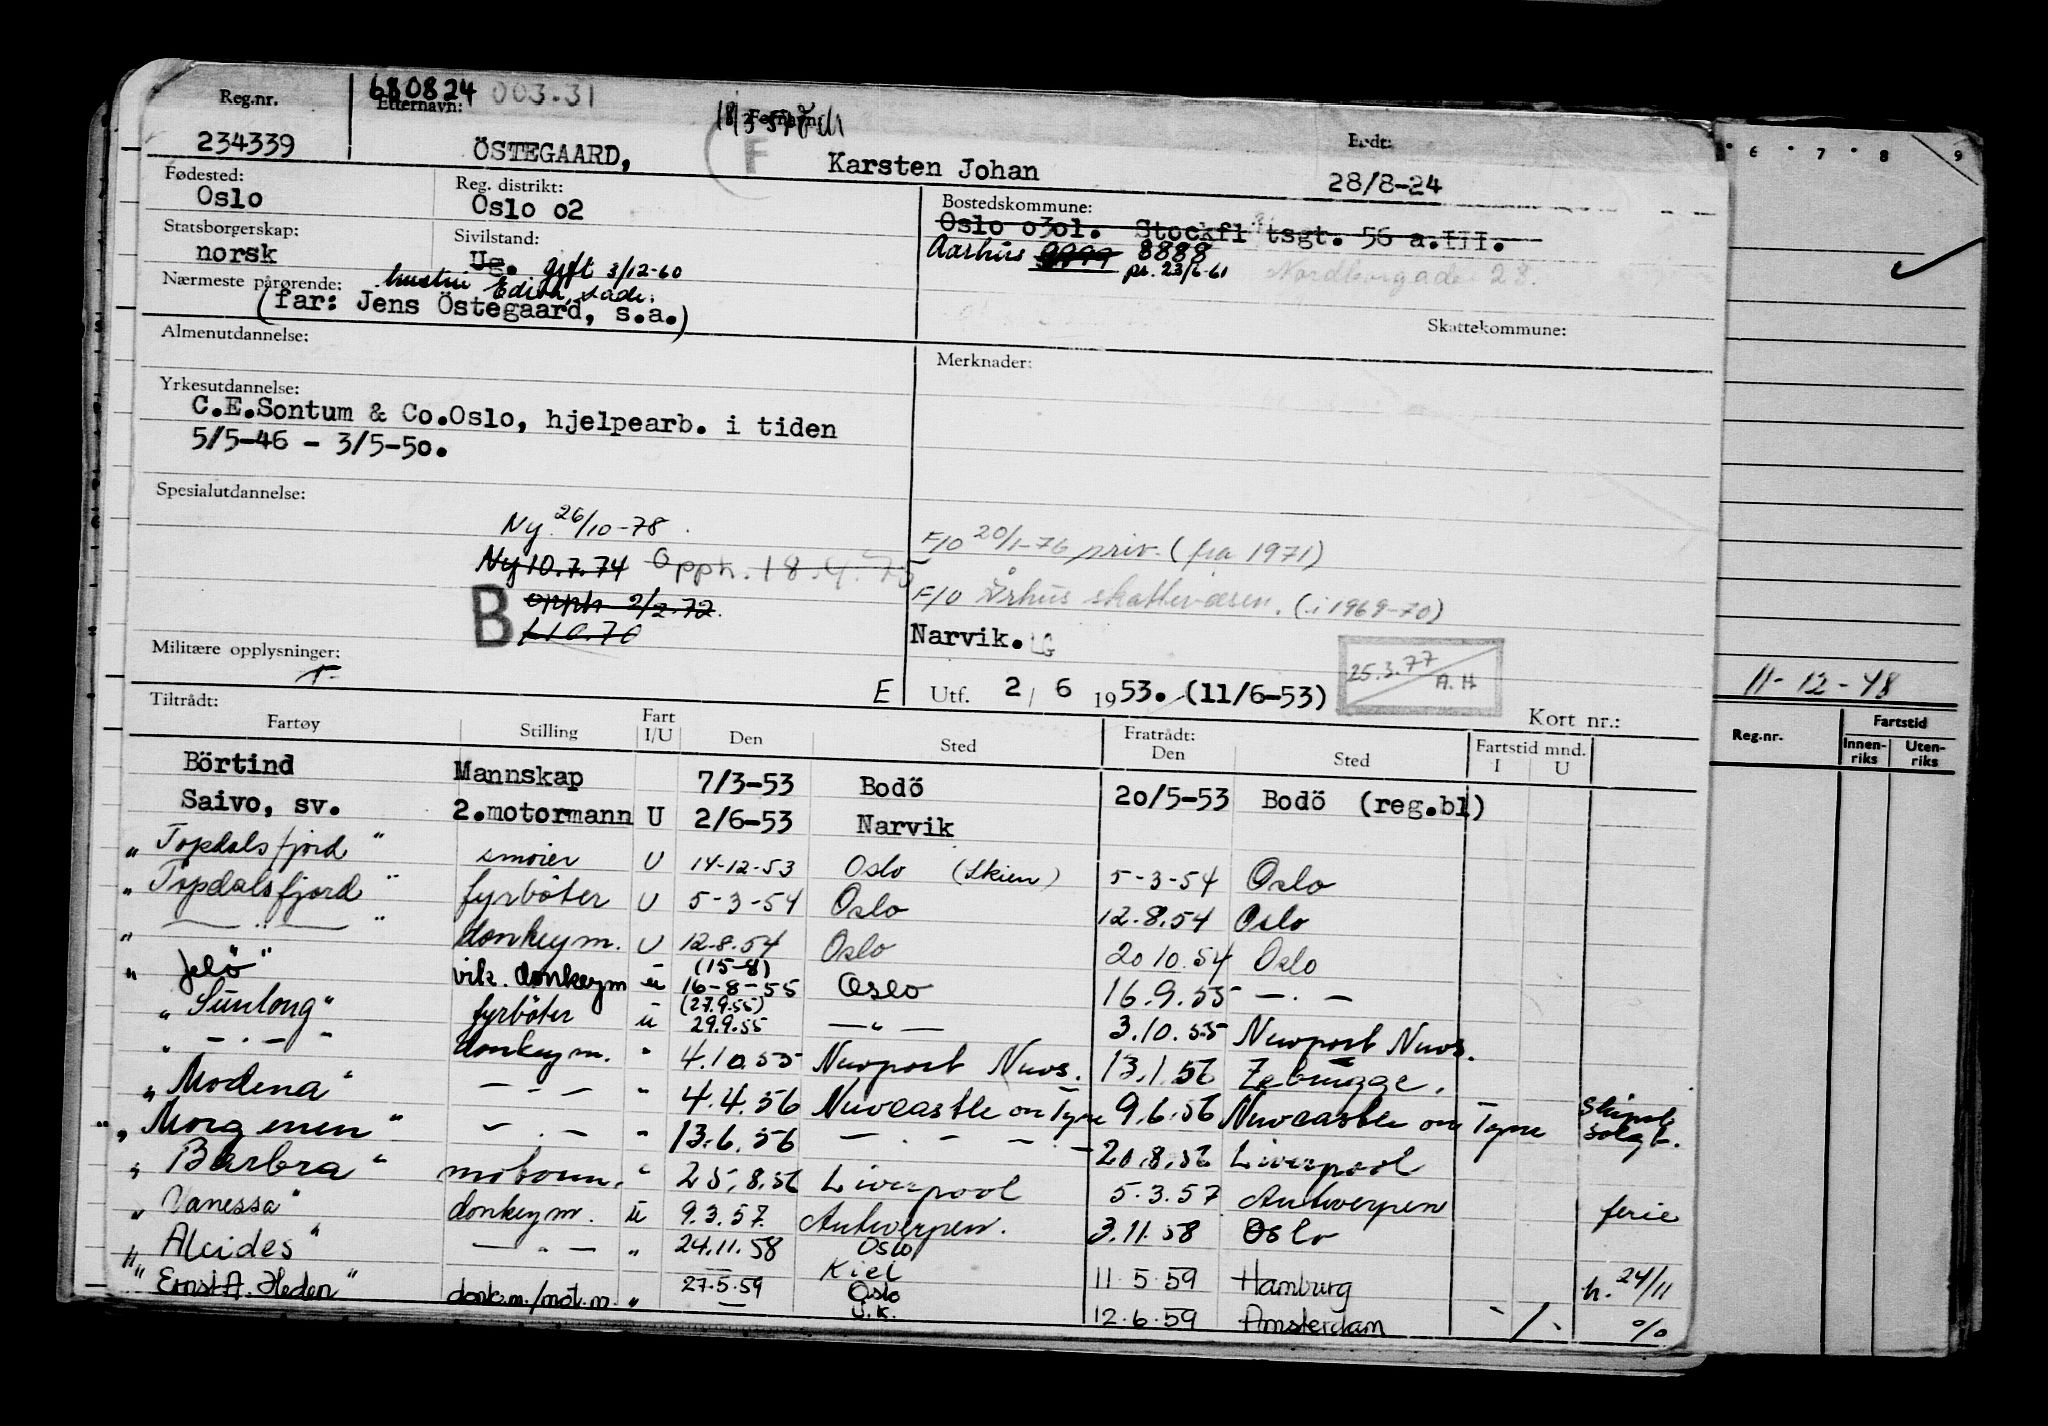 680824 003.31
Reg.nr. Etternavn: Fornavn: Født:
234339 ÖSTEGAARD, F Karsten Johan 28/8-24
Fødested: Reg. distrikt: Bostedskommune:
Oslo Oslo o2 Oslo o3ol. Stockfl tsgt. 56 a.III.
Statsborgerskap: Sivilstand: Aarhus 8888
norsk Ug. gift 3/12-60 pr. 23/6-61
Nærmeste pårørende: hustru sade.
(far: Jens Östegaard, s.a.)
Skattekommune:
Almenutdannelse: Merknader:
Yrkesutdannelse:
C.E.Sontum & Co.Oslo, hjelpearb. i tiden
5/5-46 - 3/5-50.
Spesialutdannelse:
Ny 26/10-78
F/O 20/1-76 priv. (fra 1971)
Ny 10.7.74 Opph. 18.4.75
B opph 2/2.72. F/O Århus skattevæsen. (i 1969-70)
1.10.70 Narvik.
Militære opplysninger: 25.3.77 A.H
E Utf. 2 / 6 1953. (11/6-53)
Kort nr.:
11-12-48
Tiltrådt: Fratrådt:
Fartøy Stilling Fart I/U Den Sted Den Sted Fartstid mnd. I U
Reg.nr. Fartstid Innen-riks Uten-riks
Börtind Mannskap 7/3-53 Bodö 20/5-53 Bodö (reg.bl)
Saivo, sv. 2.motormann U 2/6-53 Narvik
" Topdalsfjord " smører U 14-12-53 Oslo (Skien) 5-3-54 Oslo
" Topdalsfjord " fyrböter U 5-3-54 Oslo 12.8.54 Oslo
" — " — " donkeym. U 12-8-54 Oslo 20 10.54 Oslo
" Jelö " vik. donkeym u (15-8) 16-8-55 Oslo 16.9.55 — . —
" Sunlong " fyrböter u (27.9.55) 29.9.55 — " — 3.10.55 Newport News.
" — . — " donkeym. " 4.10.55 Newport News. 13.1.56 Zebrügge.
" Modena " — — " 4.4.56 Newcastle on Tyne 9.6.56 Newcastle on Tyne skipet solgt.
" Morgenen " — . — " 13.6.56 — . — . — 20.8.56 Liverpool
" Barbra " motorm. " 25.8.56 Liverpool 5.3.57 Antwerpen ferie
" Vanessa " donkeym. u 9.3.57. Antwerpen. 3.11.58 Oslo
" Alcides " — " — " 24.11.58 Oslo Kiel 11.5.59 Hamburg h. 24/11
" Ernst A. Heden " donk.m./mot.m. " 27.5.59 Oslo U.K. 12.6.59 Amsterdam - / . %
6 7 8 9